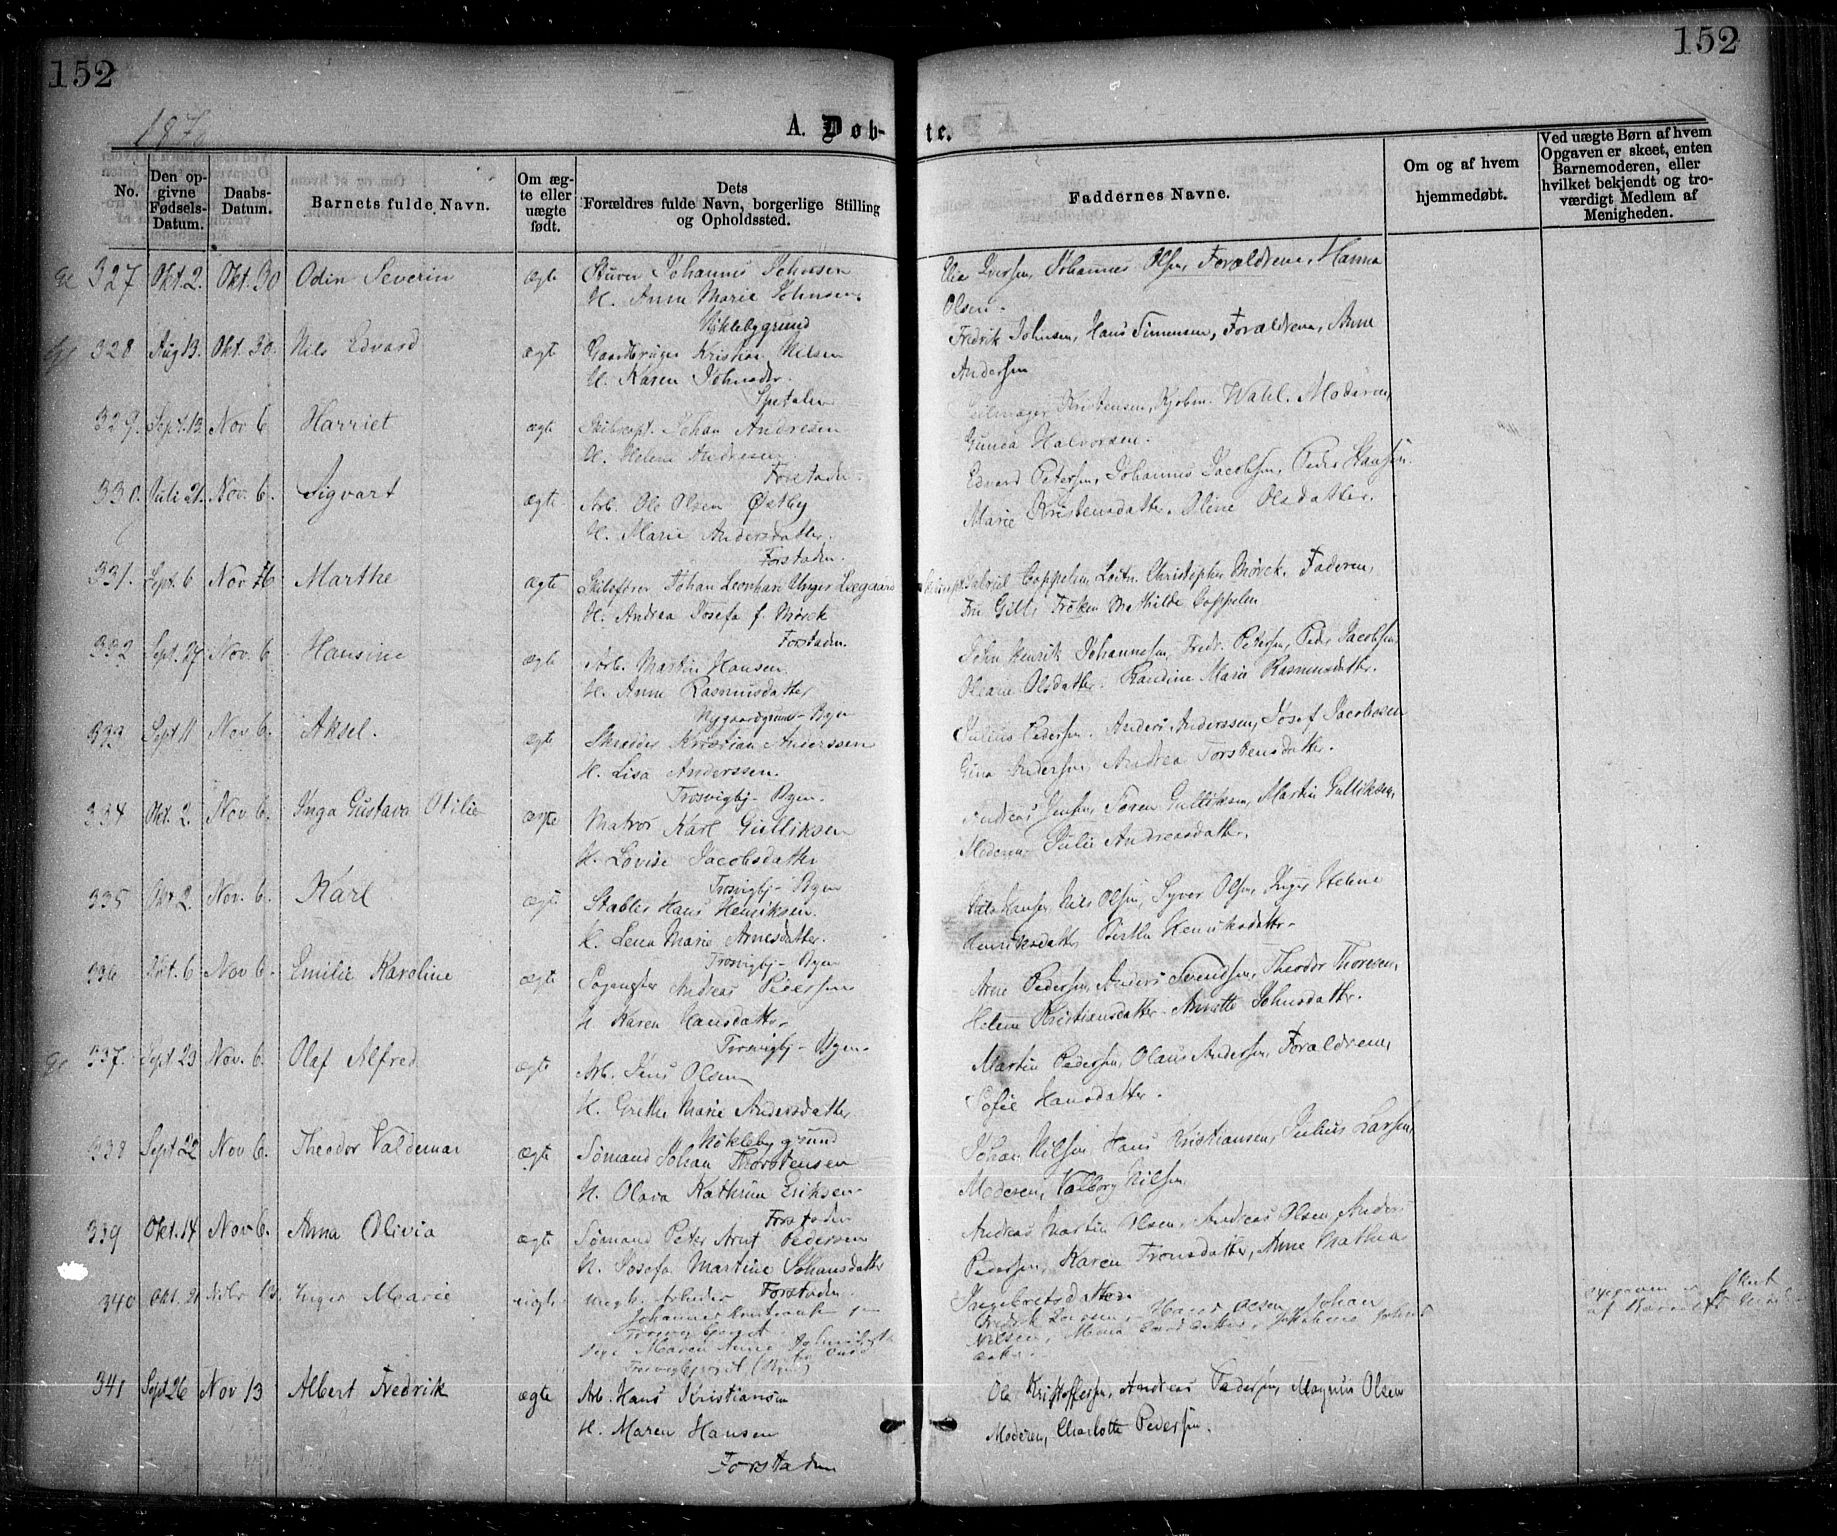 152
152
187
A. Døb-
te.
No.
Den op-
givne
Fødsels-
Datum.
Daabs-
Datum.
Barnets fulde Navn.
Om æg-
te eller
uægte
født.
Dets
Forældres fulde Navn, borgerlige Stilling
og Opholdssted.
Faddernes Navne.
Om og af hvem
hjemmedøbt.
Ved uægte Børn af hvem
Opgaven er skeet, enten
Barnemoderen, eller
hvilket bekjendt og tro-
værdigt Medlem af
Menigheden.
327 Okt. 2. Okt. 30 Odin Severin ægte Stuver Johannes Johnsen
H. Anne Marie Johnsen.
Iversen, Johannes Olsen, Forældrene, Hanna
Olsen.
Nøklebygrund
328 Aug 13. Okt. 30. Nils Edvard ægte Gaardbruger Kristian Nilsen
H. Karen Johnsdtr.
Fredrik Johnsen, Hans Simensen, Forældrene, Anne
Andersen
Spetalen
329. Sept. 13 Nov 6 Harriet ægte Skibscapt. Johan Andresen
H. Helene Andresen
Kristensen, Kjøbm. Wahl. Moderen,
Gunda Halvorsen.
Forstaden.
330. Juli 21. Nov. 6. Sigvart ægte Arb. Ole Olsen Østby
H. Marie Andersdatter.
Edvard Petersen, Johannes Jacobsen, Peder Hansen.
Marie Kristensdatter. Oline Olsdatter.
Forstaden.
331. Sept. 6 Nov 6 Marthe ægte Skibsfører Johan Leonhard Unger Leegaard
H. Andrea Josefa f. Mørck
Gabriel Coppelen, Loitn. Christopher Mørck, Faderen,
Fru Gill, Frøken Mathilde Coppelen
Forstaden.
332 Sept. 27 Nov. 6 Hansine ægte Arb. Martin Hansen
H. Anne Rasmusdatter
John Henrik Johannesen, Fredr. Petersen, Peder Jacobsen
Oleana Olsdatter. Randine Marie Rasmusdatter.
Nygaardsgrund - Byen
333 Sept 11 Nov. 6. Aksel. ægte Skrædder Kristian Anderssen
H. Lisa Anderssen.
Julius Pedersen. Anders Anderssen, Josef Jacobsen
Gina Andersen, Andrea Torstensdatter.
Trosvigbj - Byen.
334 Okt. 2. Nov. 6. Inga Gustava Otilie ægte Matros Karl Gulliksen
H. Lovise Jacobsdatter
Andreas Jensen, Søren Gulliksen, Martin Gulliksen,
Moderen Julie Andreasdatter.
Trosvigbj - Byen
335 Okt 2. Nov. 6. Karl ægte Stabler Hans Henriksen.
H. Lena Marie Arnesdatter.
Hansen, Nils Olsen, Syver Olsen, Inger Helene
Henriksdatter, Birthe Henriksdatter.
Trosvigbj - Byen
336 Okt. 6 Nov 6. Emilie Karoline ægte Andreas Pedersen
H. Karen Hansdatter.
Arne Pedersen, Anders Svendsen, Theodor Thoresen,
Helene Kristiansdatter. Annette Johnsdatter.
Trosvigbj - Byen.
337. Sept 23 Nov. 6. Olaf Alfred ægte Arb. Jens Olsen
H. Grethe Marie Andersdatter.
Martin Pedersen, Olaus Andersen, Forældrene,
Sofie Hansdatter.
Nøklebygrund
338 Sept 22 Nov 6. Theodor Valdemar ægte Sømand Johan Thorstensen
H. Olava Kathrine Eriksen.
Johan Nilsen, Hans Kristiansen, Julius Larsen,
Moderen, Valborg Nilsen
Forstaden
339 Okt. 14 Nov 6. Anna Olivia ægte Sømand Peter Arnt Pedersen
H. Josefa Martine Johansdatter
Andreas Martin Olsen, Andreas Olsen, Anders
Pedersen, Karen Tronsdatter, Anne Mathea
Forstaden.
Ingebretsdatter.
340 Okt. 21 Nov 13. Inger Marie uægte Arbeider
Johannes
Fredrik Olsen, Johan
Nilsen, Maria
Maren Anne
(Byen)
Opgaven er skeet
af
341 Sept 26 Nov 13 Albert Fredrik ægte Arb. Hans Kristiansen
H. Maren Hansen
Ole Kristoffersen, Andreas Pedersen, Magnus Olsen
Moderen, Charlotte Pedersen.
Forstaden